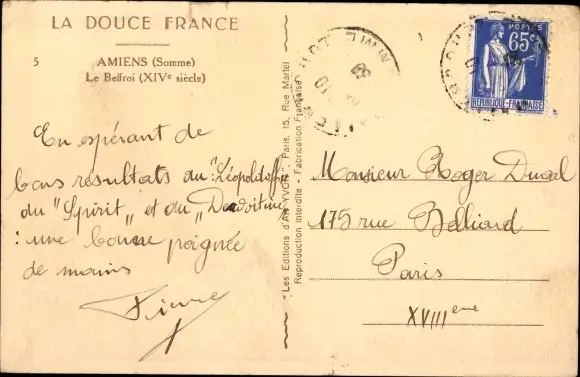 LA DOUCE FRANCE
5 AMIENS (Somme)
Le Beffroi (XIVe siècle)
En espérant de
bons resultats du "Léopoldoff"
du "Spirit" et du "Dewoitine"
: une bonne poignée
de mains
Pierre
"Les Editions d'Art YVON" - Paris, 15, Rue Martel
Reproduction Interdite - Fabrication Française
POSTES
65c
REPUBLIQUE FRANÇAISE
Monsieur Roger Duval
175 rue Belliard
Paris
XVIIIeme